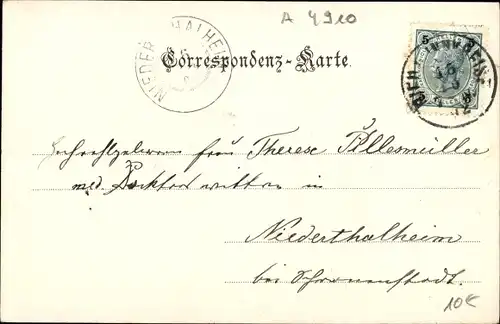 A 4910
NIEDER THALHEIM
Correspondenz-Karte.
5 5
RIED INNKREIS
Hochwohlgeboren Frau Therese Pillesmüller
med. Doktors witwe in
Niederthalheim
bei Schwanenstadt.
10€